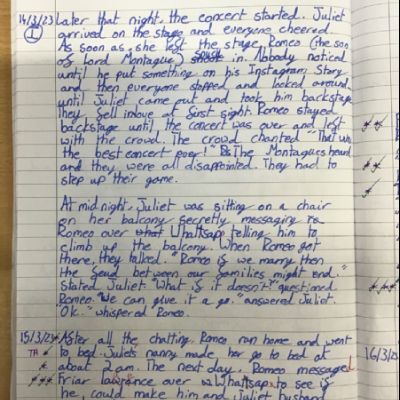 14/3/23 Later that night, the concert started. Juliet
① arrived on the stage and everyone cheered.
As soon as, she left the stage, Romeo (the son
of Lord Montague) snuck in. Nobody noticed
until he put something on his Instagram Story
and then everyone stopped and looked around
until Juliet came out and took him backstage
They fell inlove at first sight. Romeo stayed
backstage until the concert was over and left
with the crowd. The crowd chanted "That was
the best concert ever!" The Montagues heard
and they were all disappointed. They had to
step up their game.
At midnight, Juliet was sitting on a chair
on her balcony secretly messaging
Romeo over what Whatsapp telling him to
climb up the balcony. When Romeo got
there, they talked. "Romeo if we marry then
the feud between our families might end."
stated Juliet. "What if it doesn't?" questioned
Romeo. "We can give it a go." answered Juliet.
Ok." whispered Romeo.
15/3/23 After all the chatting, Romeo ran home and went
TH to bed. Juliets nanny made her go to bed at
about 2am. The next day, Romeo messaged 16/3/
Friar lawrance over Whatsapp to see if
he, could make him and Juliet husband